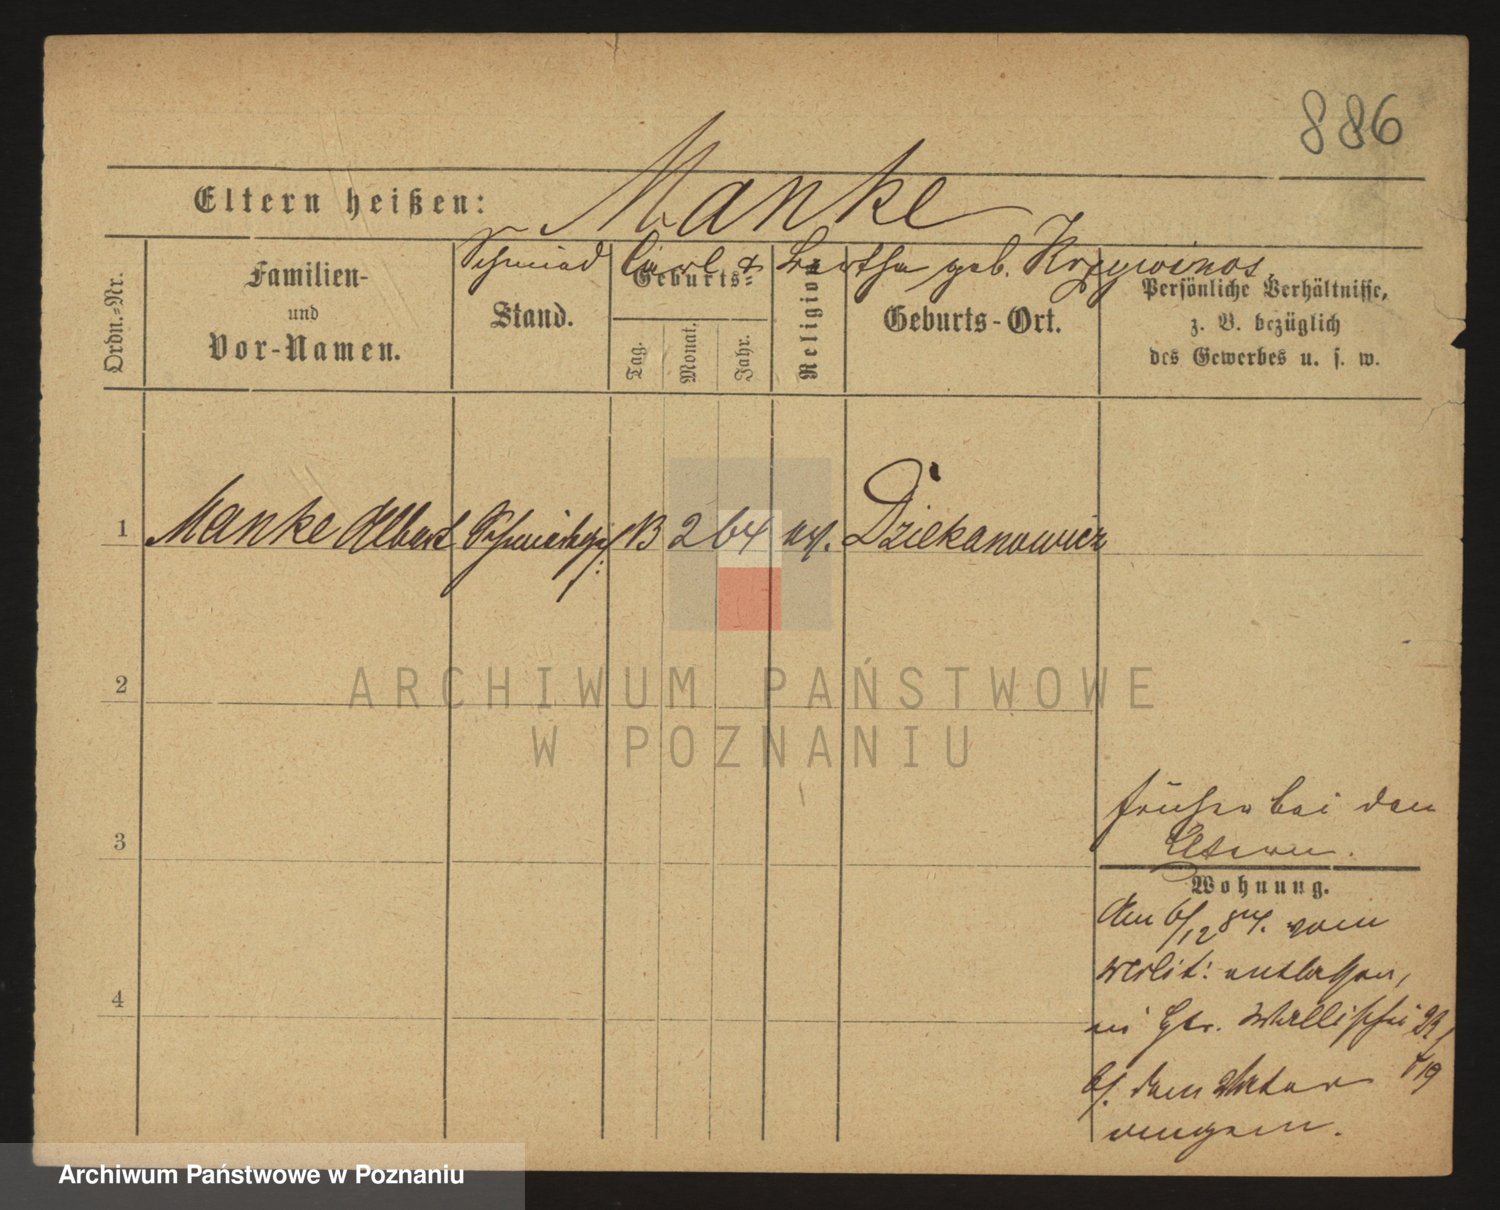 886
Eltern heißen: Manke
Schmied Carl & Bertha geb. Krzywinos.
Ordn.-Nr.
Familien-
und
Vor-Namen.
Stand.
Geburts-
Tag.
Monat.
Jahr.
Religion
Geburts-Ort.
Persönliche Verhältnisse,
z. B. bezüglich
des Gewerbes u. s. w.
1 Manke Albert 13 2 64 Dziekanowicz
2
3
4
früher bei den
Eltern.
Wohnung.
Am 6/12 84. vom
Milit: entlassen,
Wallischei
b/. dem Vater
ARCHIWUM PAŃSTWOWE
W POZNANIU
Archiwum Państwowe w Poznaniu